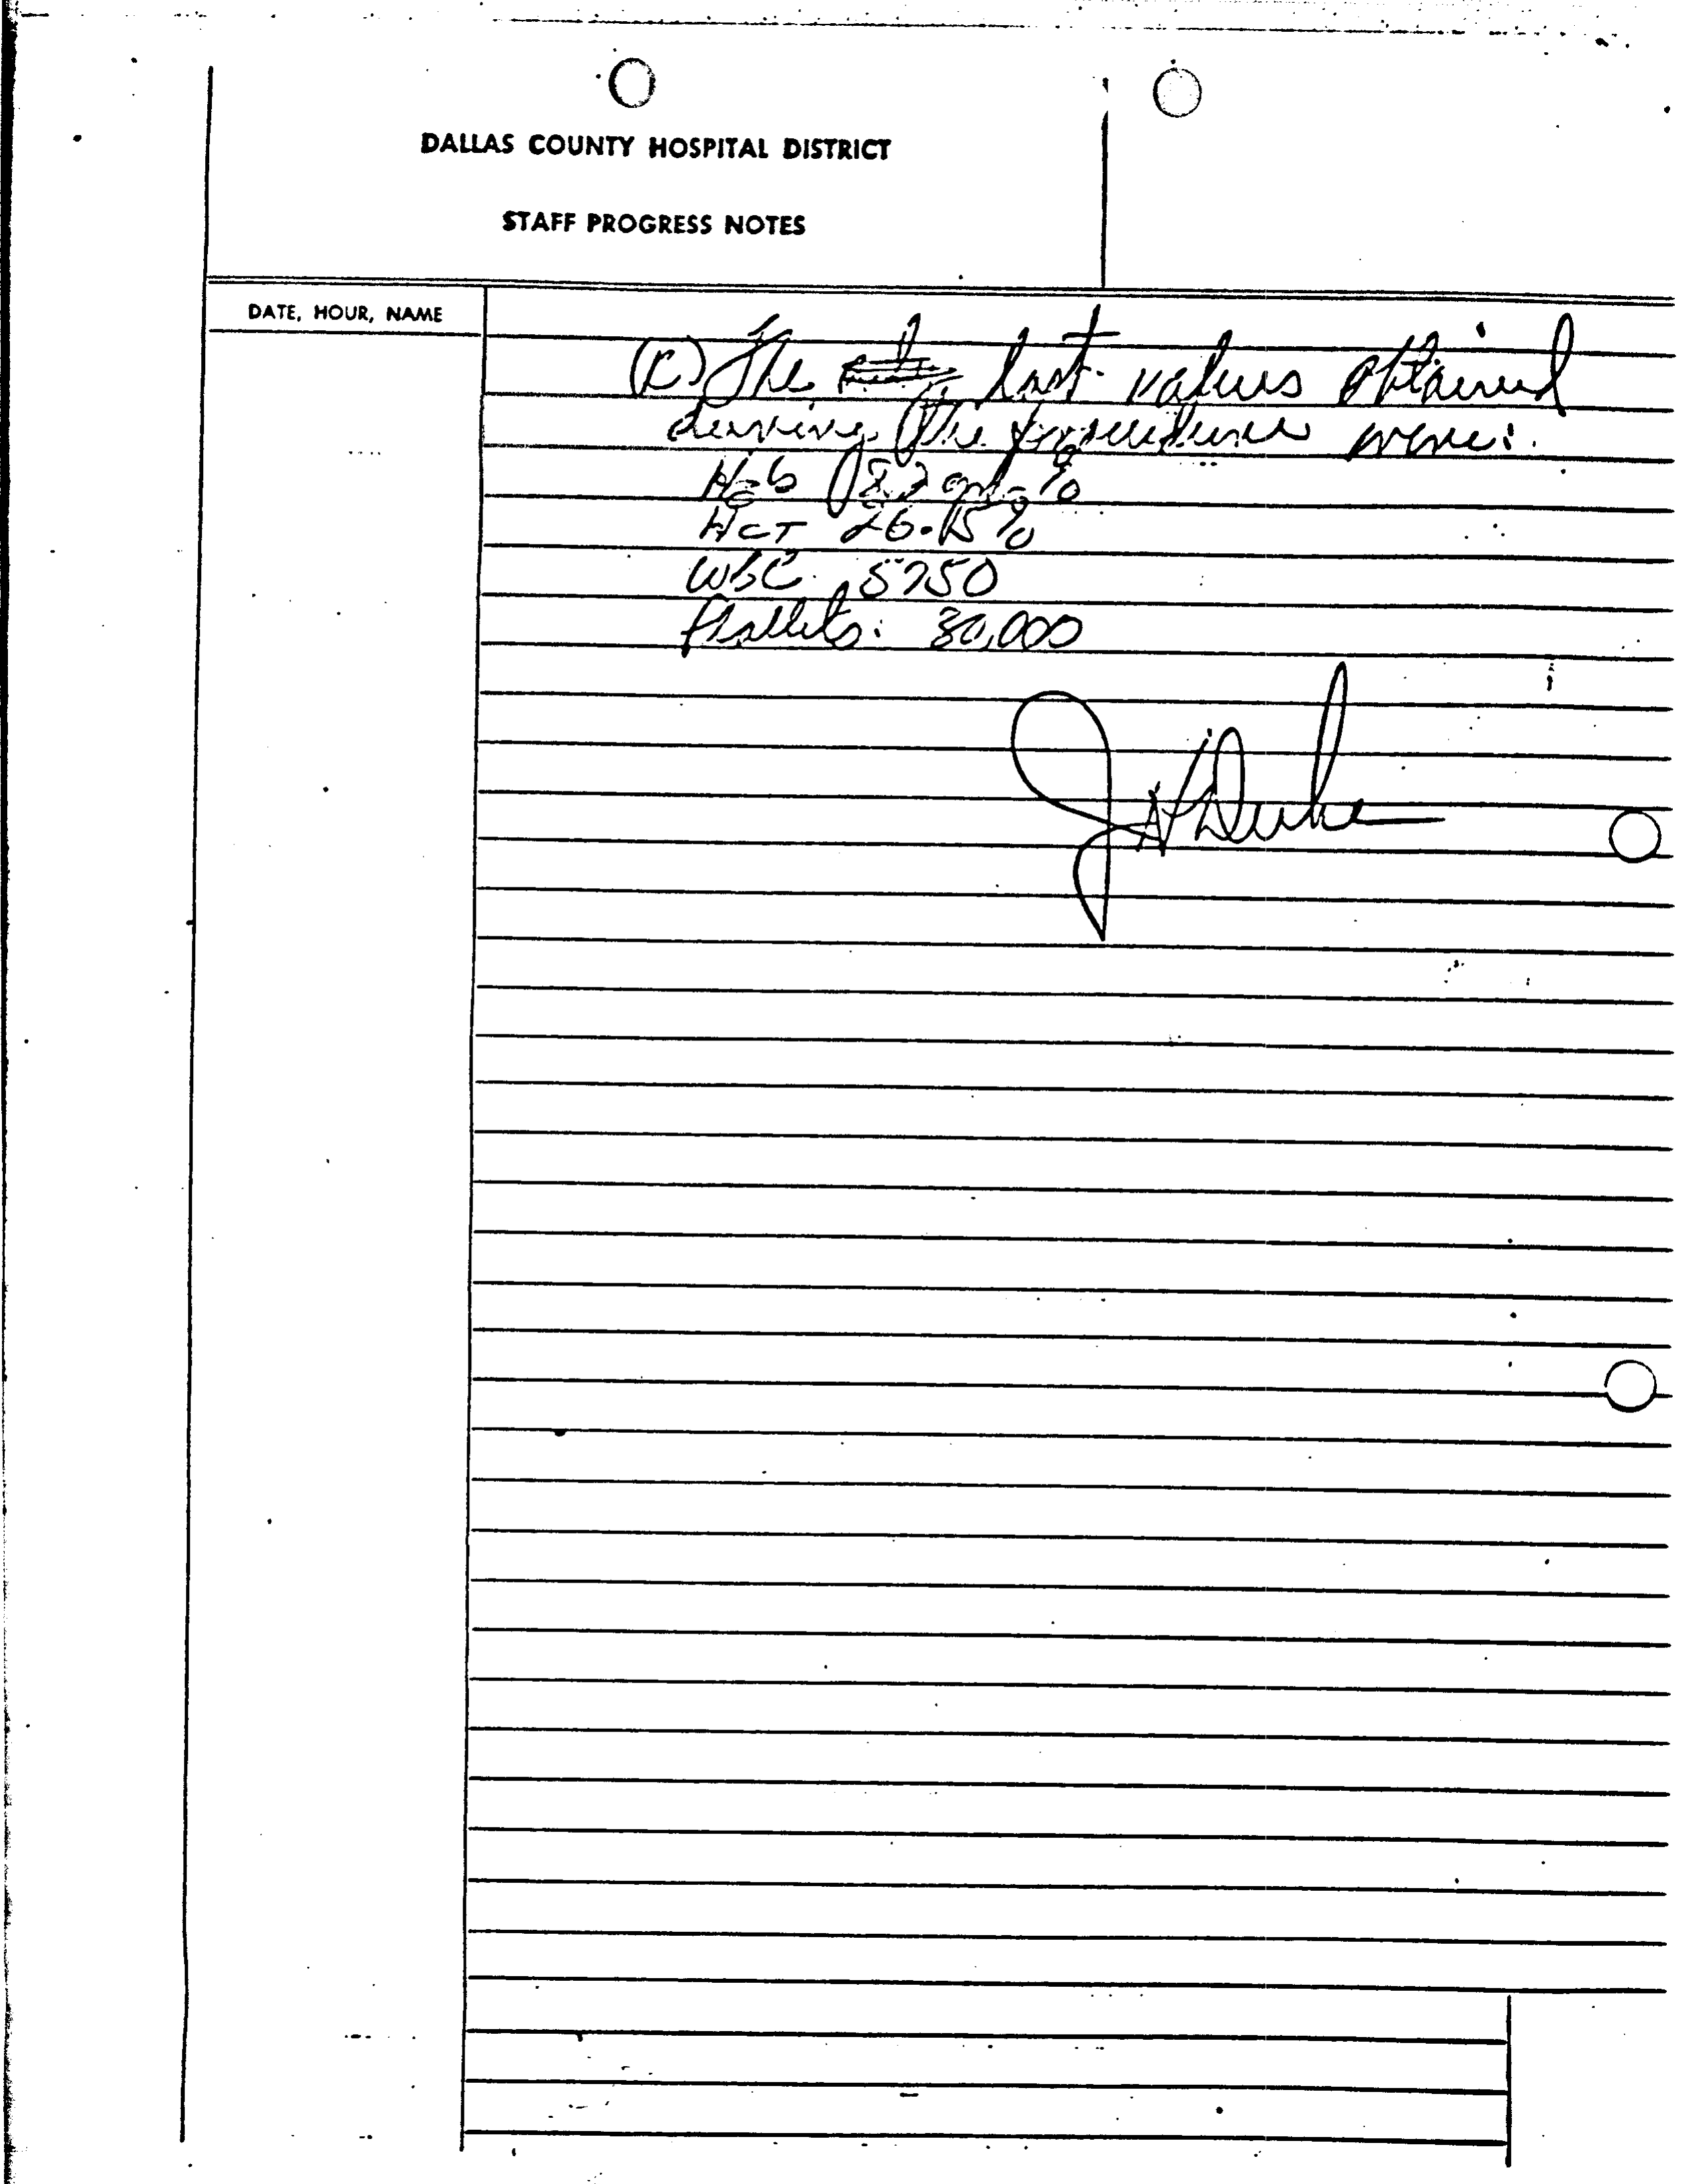 DALLAS COUNTY HOSPITAL DISTRICT
STAFF PROGRESS NOTES
DATE, HOUR, NAME
The last values obtained
during the procedure were:
Hgb 8.2 %
HCT 26.15%
WBC 5750
Platlets: 30,000
J H Duke